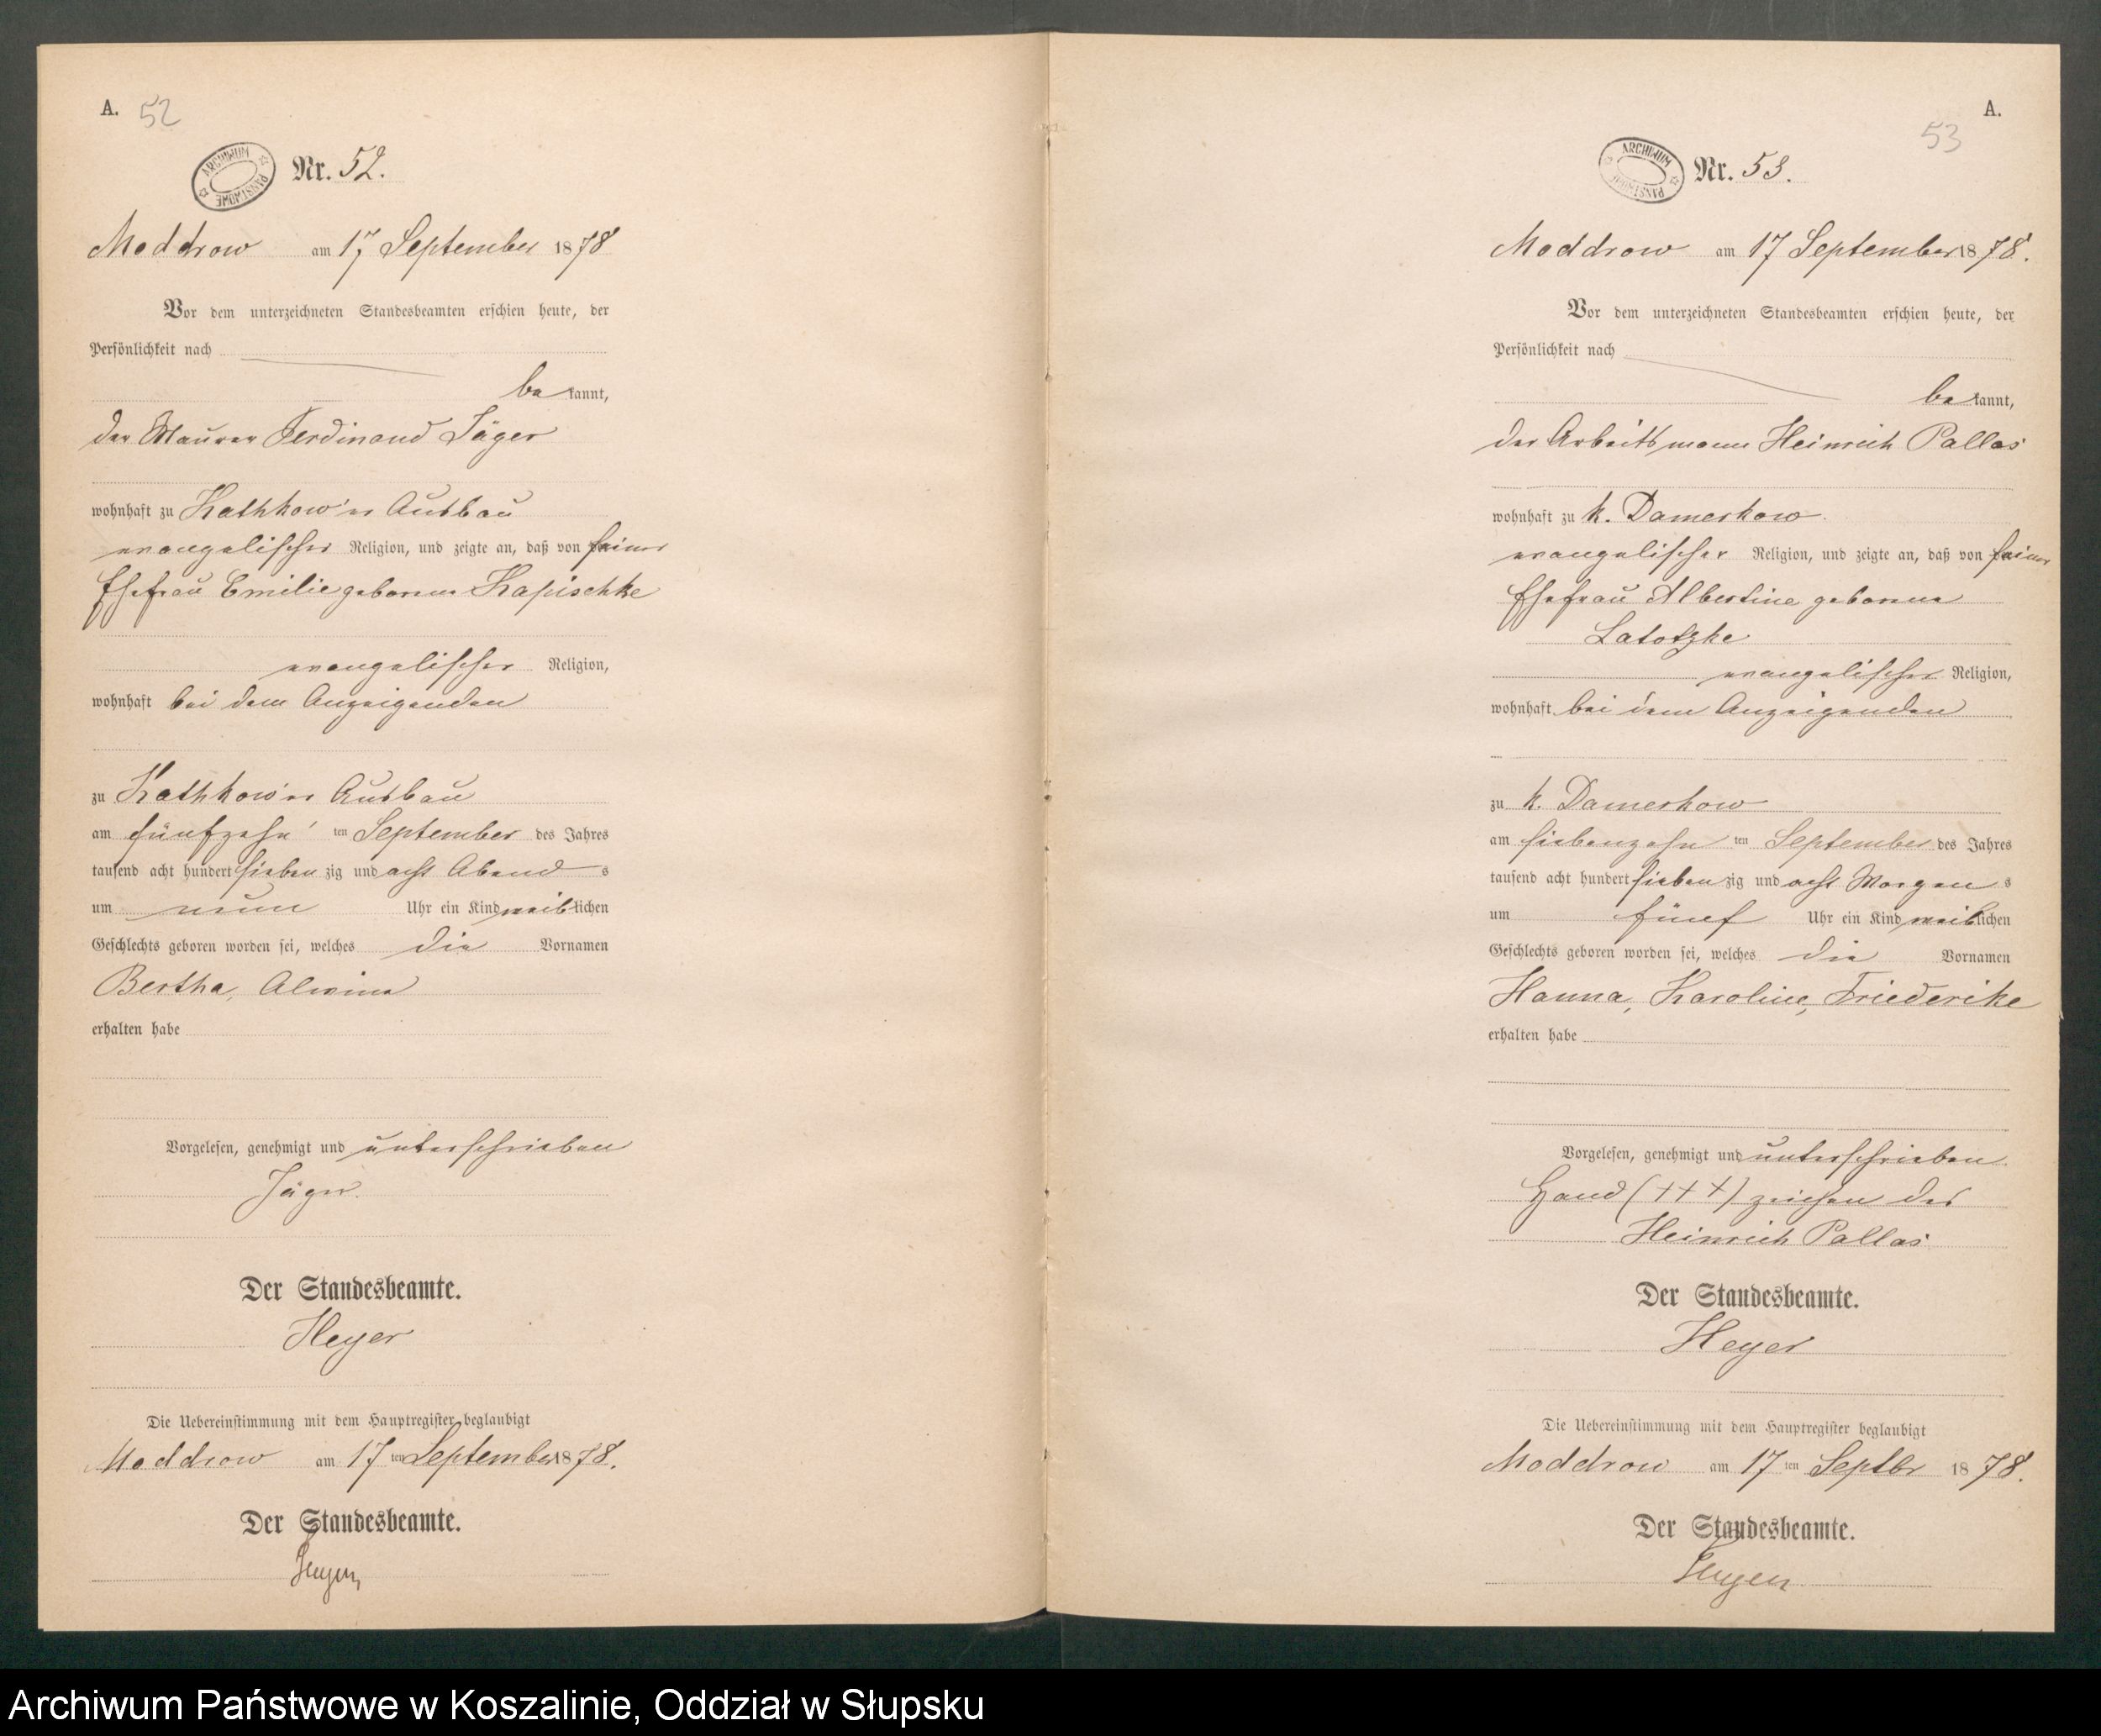 A. 52
ARCHIWUM PAŃSTWOWE
Nr. 52.
Moddrow am 17 September 1878
Vor dem unterzeichneten Standesbeamten erschien heute, der
Persönlichkeit nach
be kannt,
der Maurer Ferdinand Jäger
wohnhaft zu Kathkow'er Ausbau
evangelischer Religion, und zeigte an, daß von seiner
Ehefrau Emilie geborene Kapischke
evangelischer Religion,
wohnhaft bei dem Anzeigenden
zu Kathkow'er Ausbau
am fünfzehn ten September des Jahres
tausend acht hundert sieben zig und acht Abend s
um neun Uhr ein Kind weiblichen
Geschlechts geboren worden sei, welches die Vornamen
Bertha, Alwine
erhalten habe
Vorgelesen, genehmigt und unterschrieben
Jäger.
Der Standesbeamte.
Heyer
Die Uebereinstimmung mit dem Hauptregister beglaubigt
Moddrow am 17 ten September 1878.
Der Standesbeamte.
A.
53
ARCHIWUM PAŃSTWOWE
Nr. 53.
Moddrow am 17 September 1878.
Vor dem unterzeichneten Standesbeamten erschien heute, der
Persönlichkeit nach
be kannt,
der Arbeitsmann Heinrich Pallas
wohnhaft zu k. Damerkow
evangelischer Religion, und zeigte an, daß von seiner
Ehefrau Albertine geborene
Latotzke
evangelischer Religion,
wohnhaft bei dem Anzeigenden
zu k. Damerkow
am siebenzehn ten September des Jahres
tausend acht hundert sieben zig und acht Morgen s
um fünf Uhr ein Kind weiblichen
Geschlechts geboren worden sei, welches die Vornamen
Hanna, Karoline, Friederike
erhalten habe
Vorgelesen, genehmigt und unterschrieben
Hand (+++) zeichen des
Heinrich Pallas
Der Standesbeamte.
Heyer
Die Uebereinstimmung mit dem Hauptregister beglaubigt
Moddrow am 17 ten Septbr 1878.
Der Standesbeamte.
Archiwum Państwowe w Koszalinie, Oddział w Słupsku